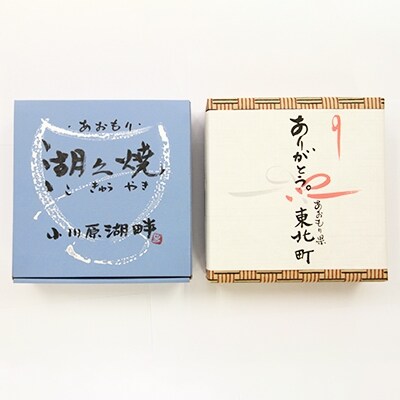 ・あおもり・
湖久焼
こ きゅう やき
小川原湖畔
ありがとう。
あおもり県
東北町